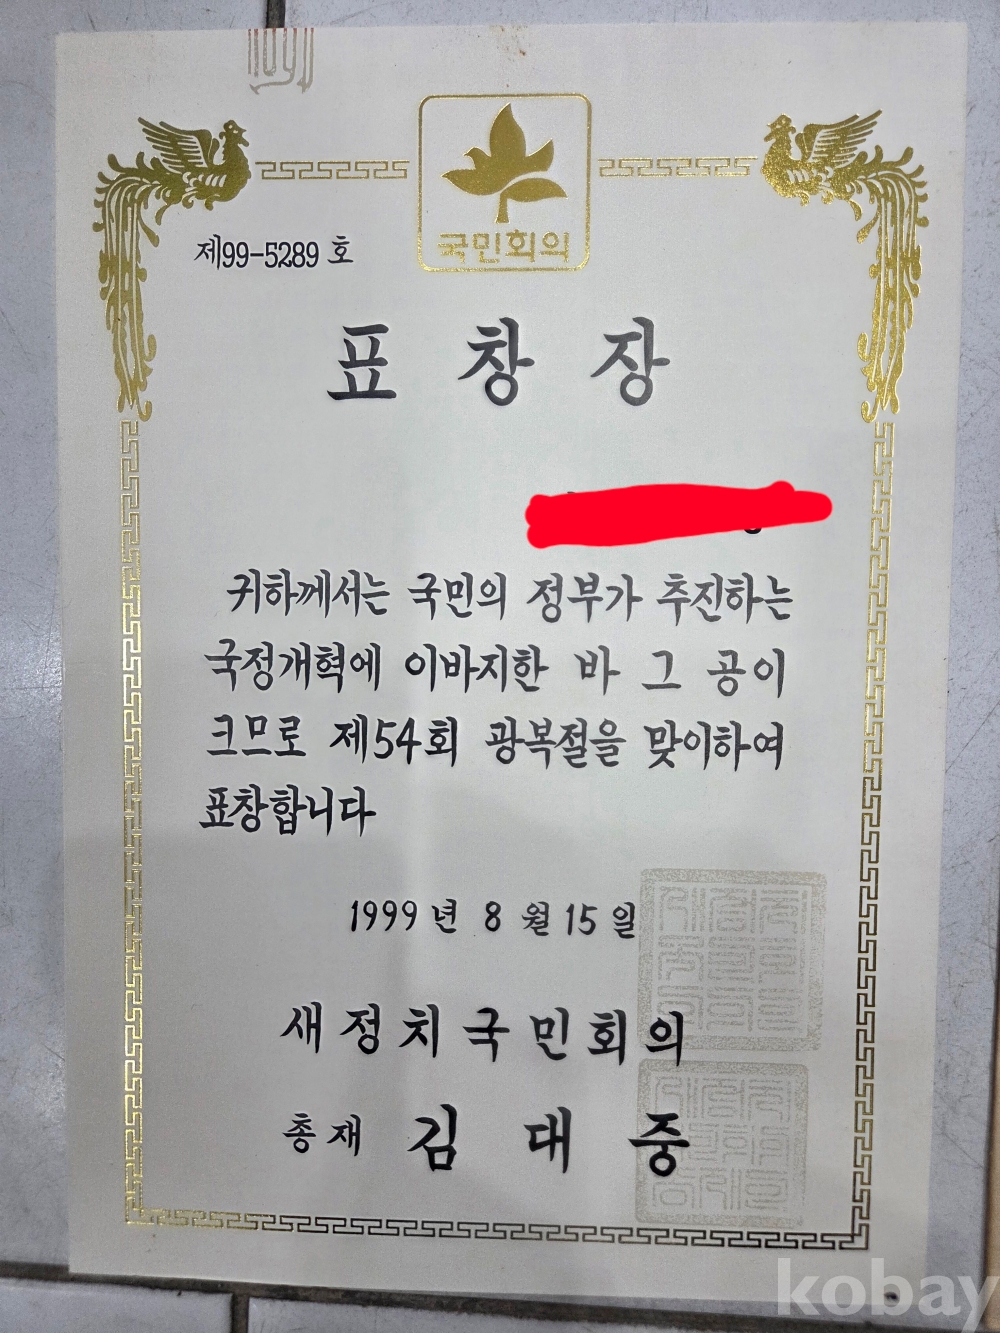 국민회의
제99-5289 호
표 창 장
귀하께서는 국민의 정부가 추진하는
국정개혁에 이바지한 바 그 공이
크므로 제54회 광복절을 맞이하여
표창합니다
1999 년 8 월 15 일
새정치국민회의
총재 김 대 중
kobay